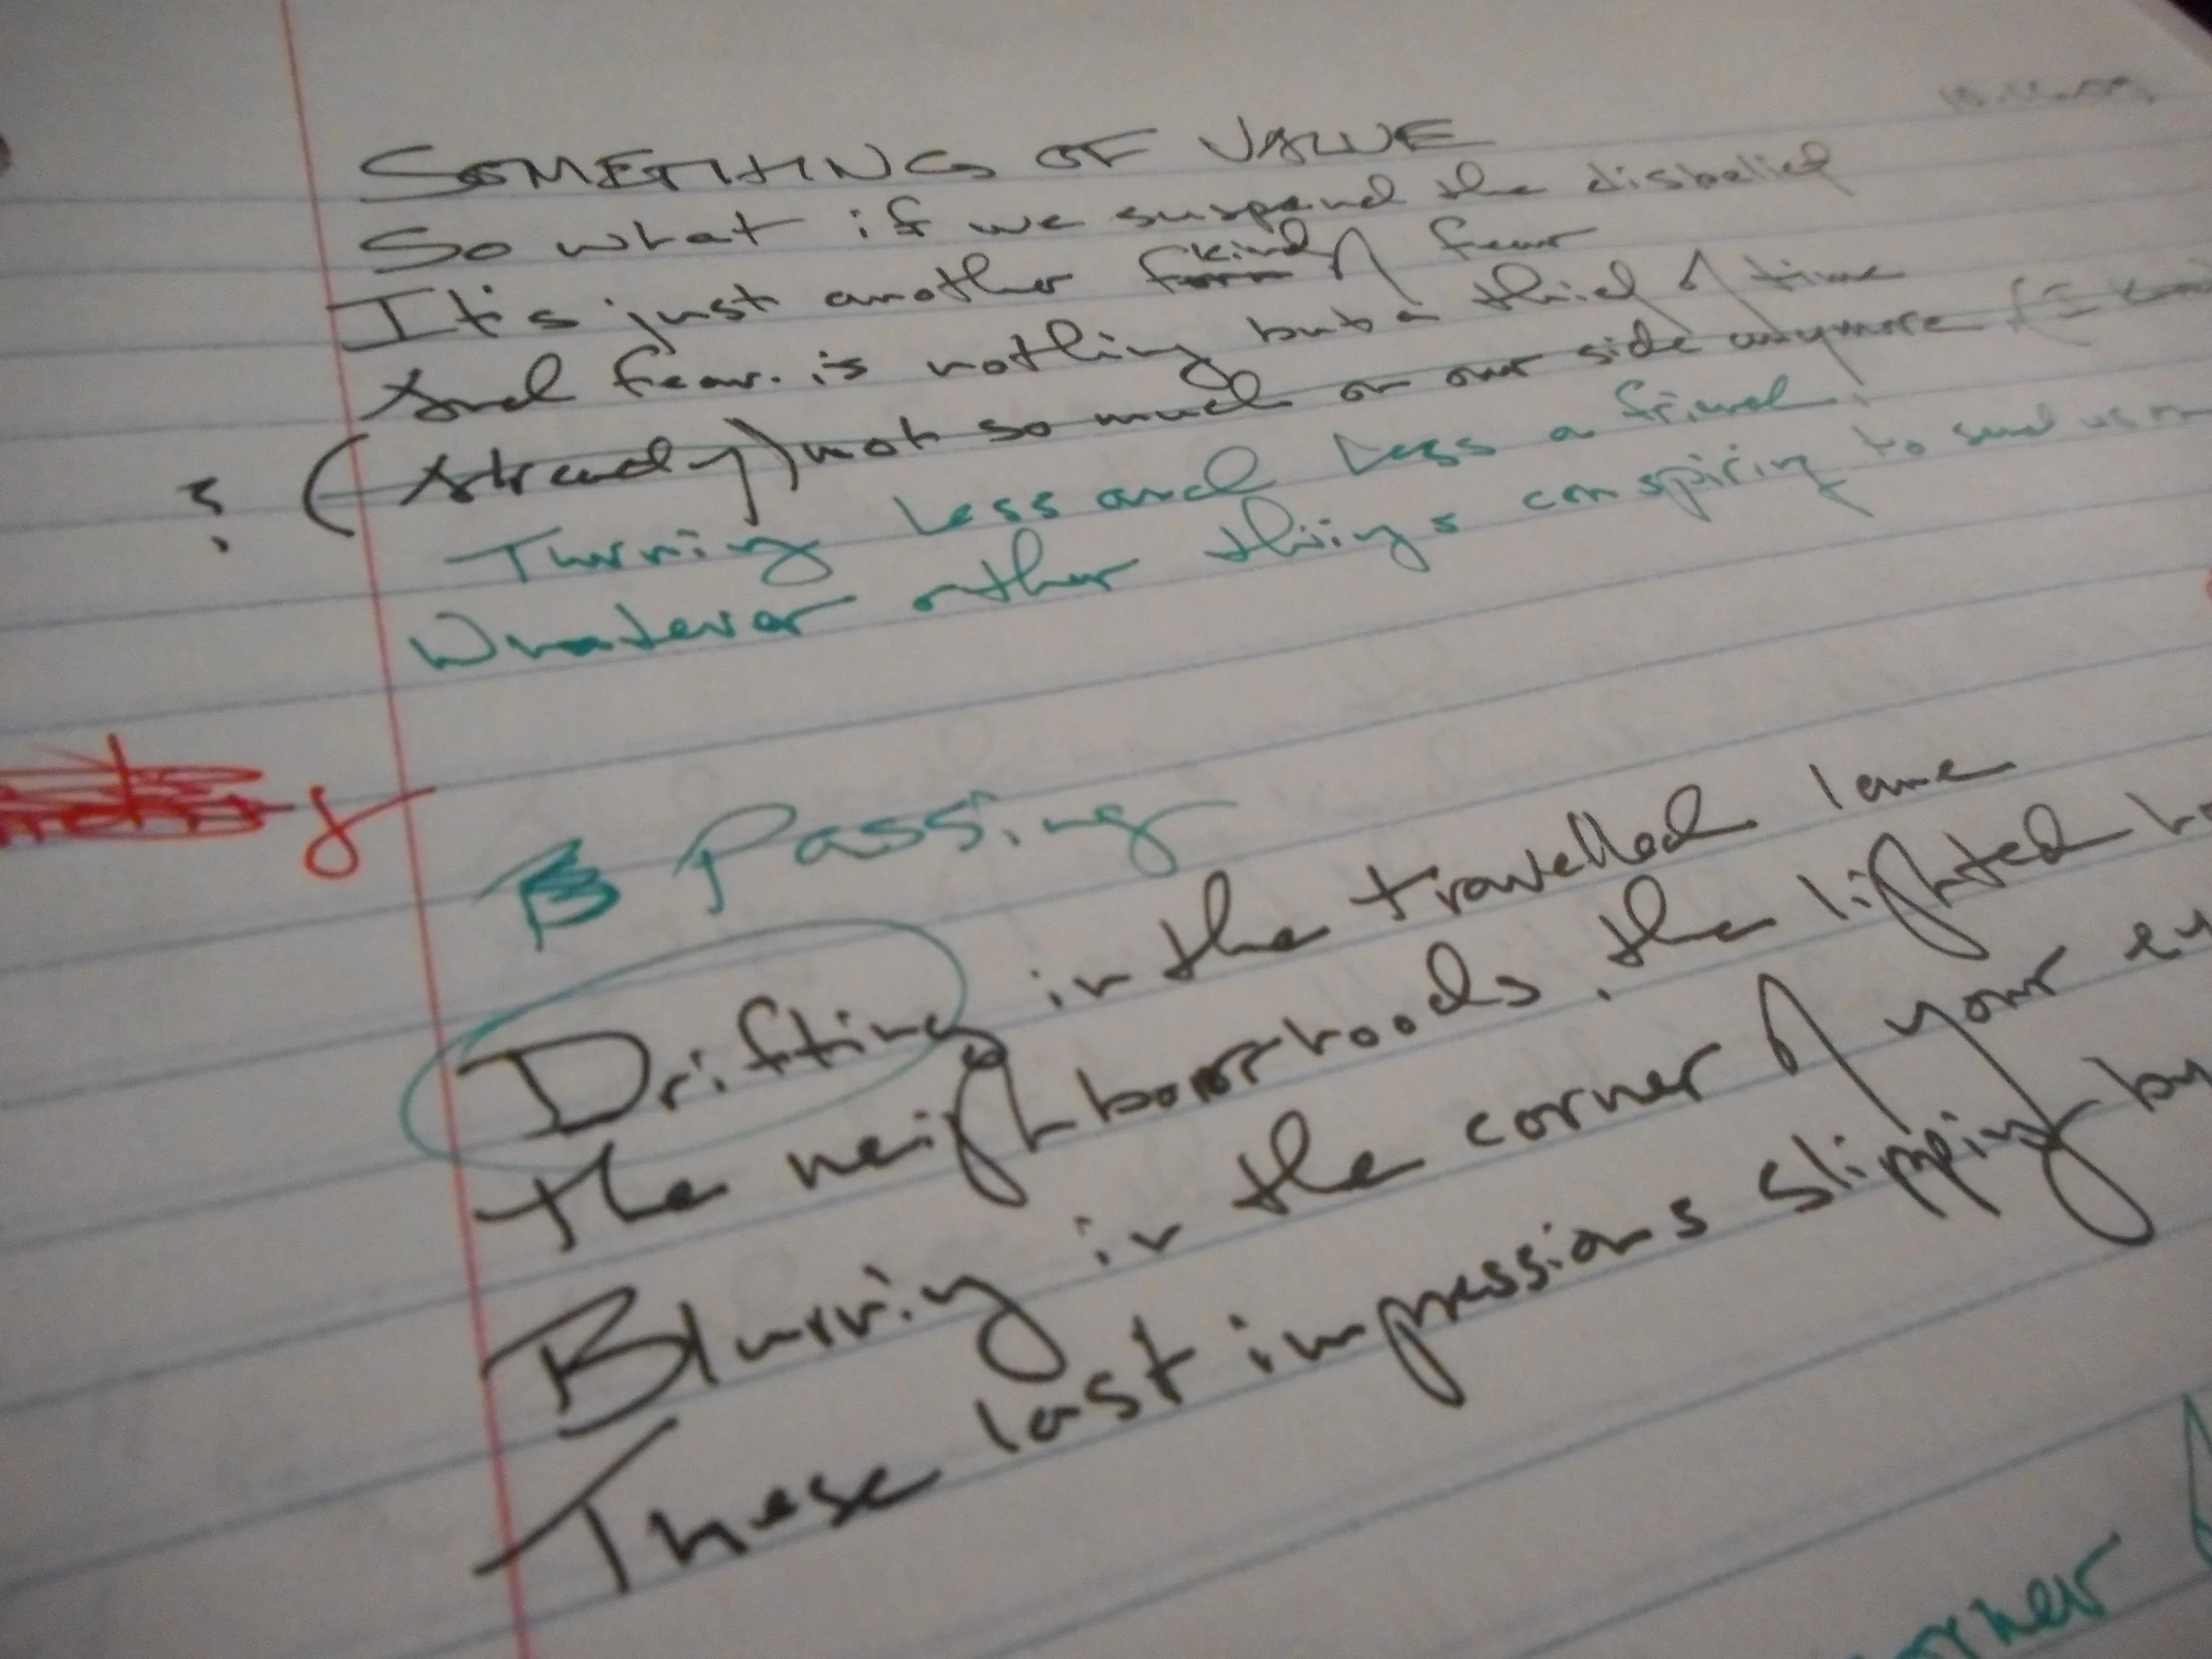 SOMETHING OF VALUE
So what if we suspend the disbelief
It's just another form kind of fear
And fear is nothing but a thief of time
? (Already) not so much on our side anymore (I
Turning less and less a friend
Whatever other things conspiring to send us
B Passing
Drifting in the travelled lane
the neighborhoods, the lighted
Blurring in the corner of your
These last impressions slipping by
orner